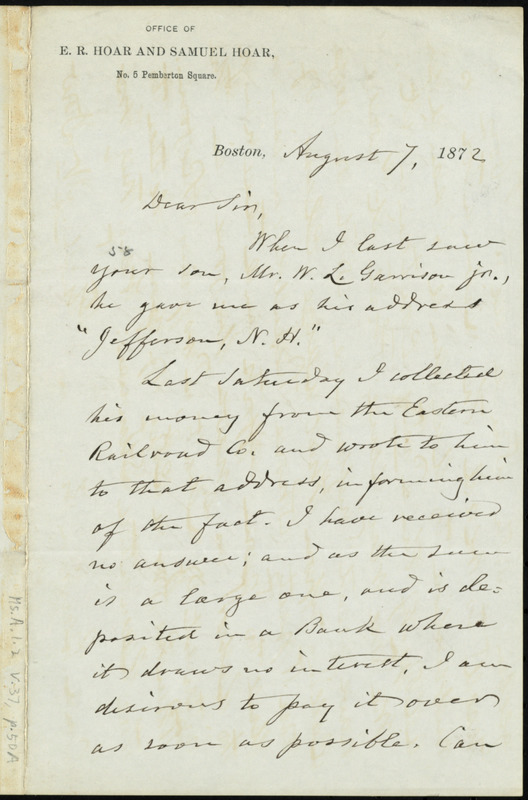 OFFICE OF
E. R. HOAR AND SAMUEL HOAR,
No. 5 Pemberton Square.
Boston, August 7, 1872
Dear Sir,
58
When I last saw
your son, Mr. W. L. Garrison jr.,
he gave me as his address
"Jefferson, N. H."
Last Saturday I collected
his money from the Eastern
Railroad Co. and wrote to him
to that address, informing him
of the fact. I have received
no answer; and as the sum
is a large one, and is de=
posited in a Bank where
it draws no interest, I am
desirous to pay it over
as soon as possible. Can
Ms.A.1.2 V.37, p.50A